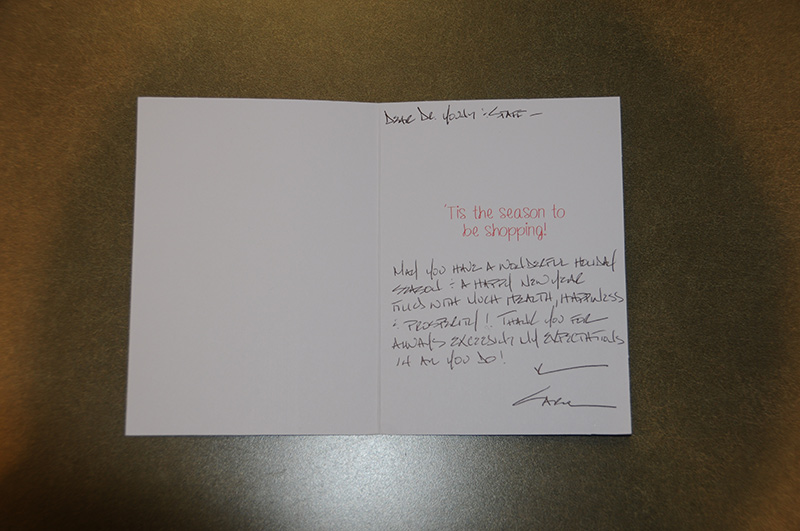 Dear Dr. Young & Staff —
'Tis the season to
be shopping!
May you have a wonderful holiday
season & a happy new year
filled with much health, happiness
& prosperity!! Thank you for
always exceeding my expectations
in all you do!